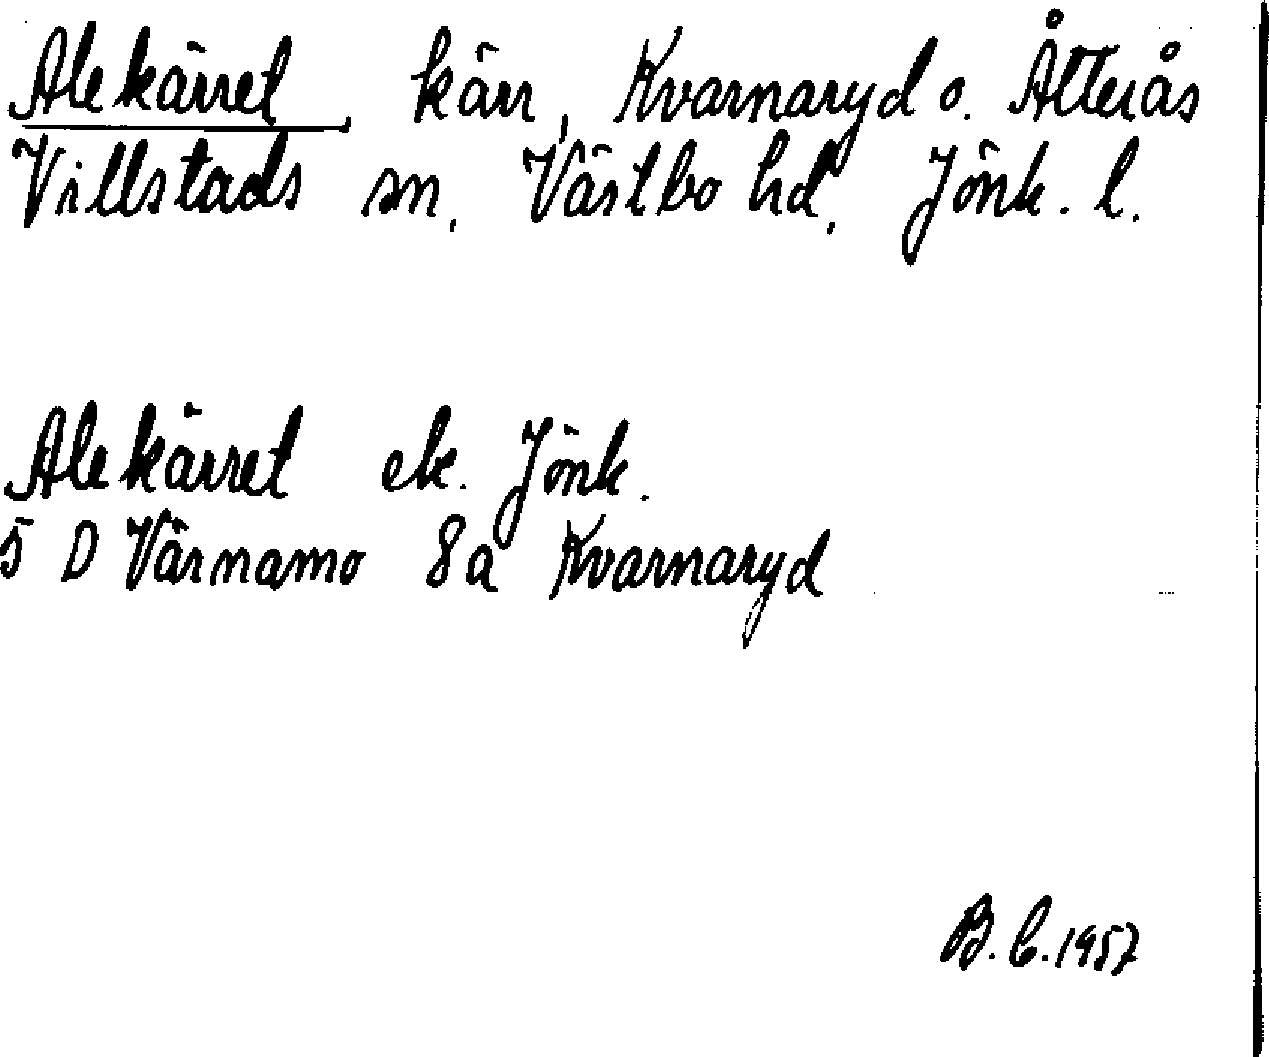 Alekärret, kärr, Kvarnaryd o. Åtterås
Villstads sn, Västbo hd, Jönk. l.
Alekärret ek. Jönk.
5 D Värnamo 8a Kvarnaryd
B.C. 1957